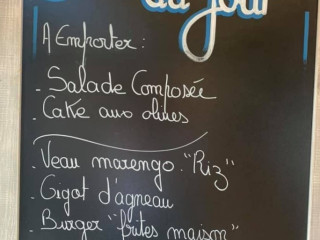 du jour
A Emporter :
- Salade Composée
- Cake aux olives
- Veau marengo "Riz"
- Gigot d'agneau
- Burger "frites maison"